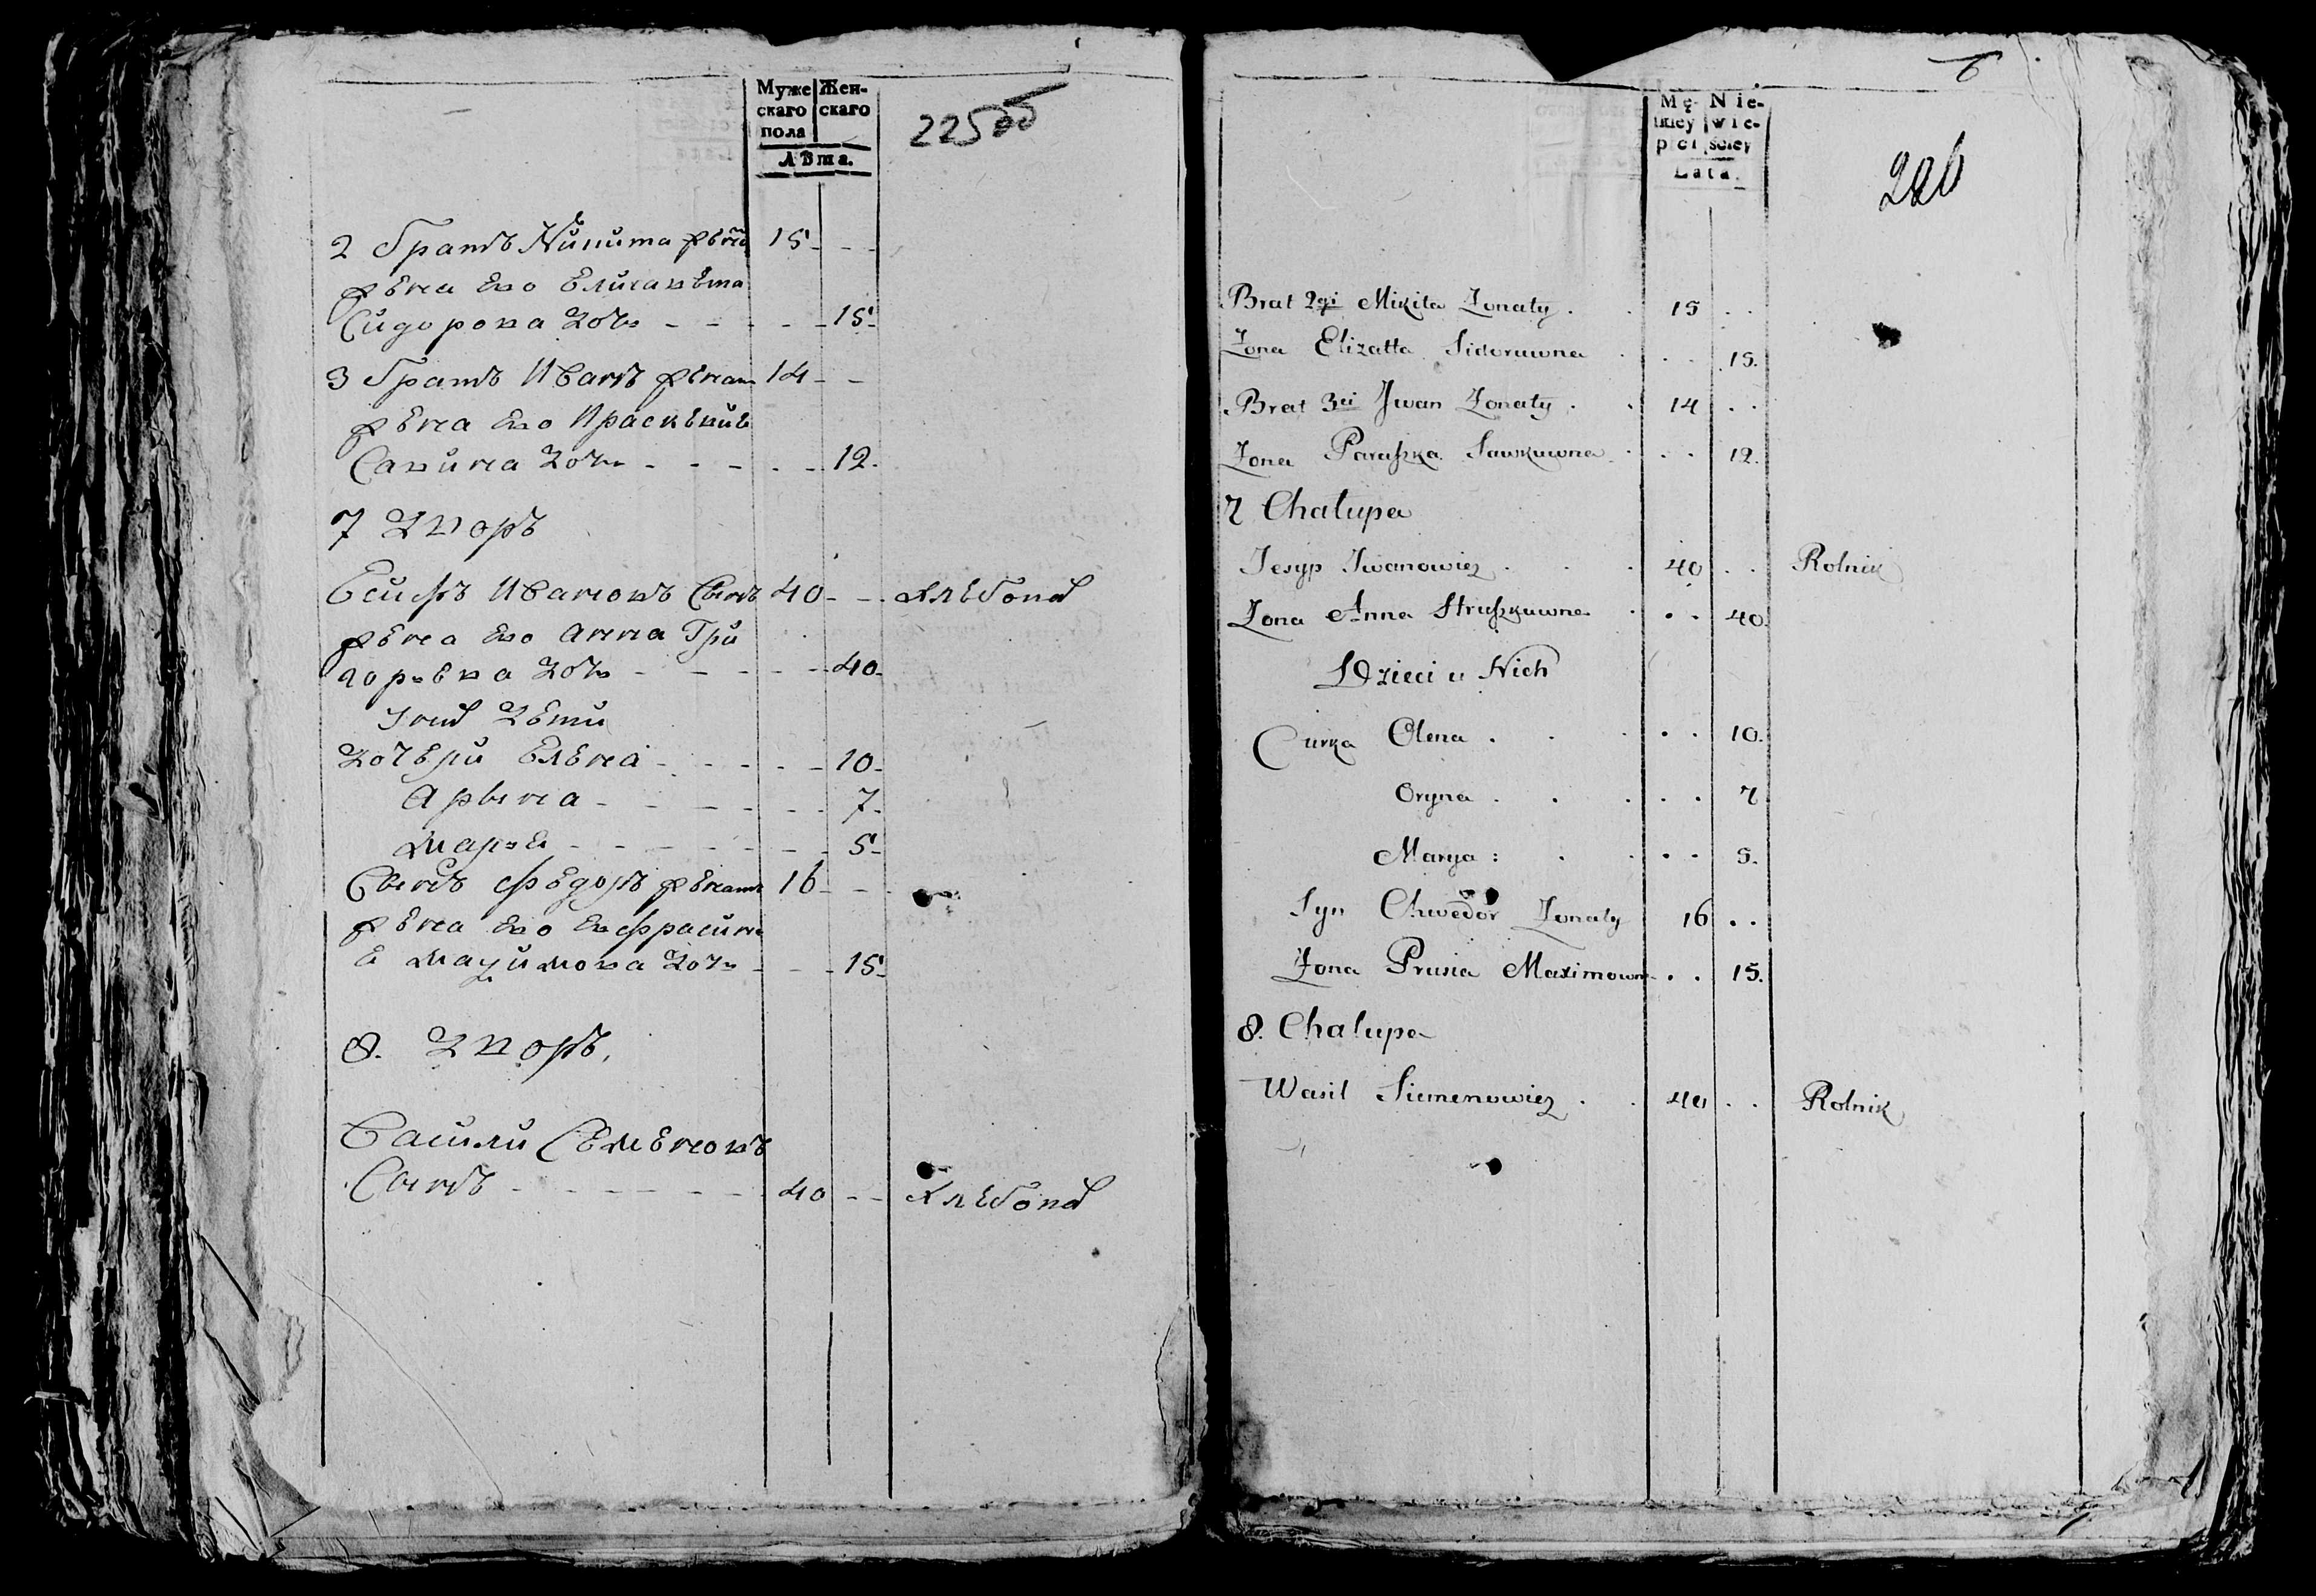 Муже Жен-
скаго скаго
пола
Лѣта.
225об
2 Братъ Никита женa 15
жена Его Елисавѣта
Сидорова дочь 15
3 Братъ Иванъ женат 14
жена Его Прасковия
Савина дочь 12
7 Дворъ
Есифъ Ивановъ Сынъ 40 хлѣбопа
жена Его Анна Гри
горьева дочь 40
У них дѣти
дочери Елена 10
Арына 7
Марья 5
Сынъ Федоръ женатъ 16
жена Его Евфросин
а Мазимова дочь 15
8. Дворъ.
Васили Семеновъ
Сынъ 40 хлѣбопа
6
Mę- Nie-
skiey wie-
płci sciey
Lata.
226
Brat 2gi Mikita Żonaty 15
Żona Elizatta Sidoruwna 15.
Brat 3ci Jwan Żonaty 14
Żona Paraszka Sawkuwna 12.
7 Chalupa
Jesyp Jwanowicz 40 Rolnik
Żona Anna Hruszkuwna 40.
Dzieci u Nich
Curka Olena 10.
Oryna 7
Marya: 5.
Syn Chwedor Żonaty 16
Żona Prusia Maximown 15.
8. Chalupa
Wasil Siemenowicz 40 Rolnik